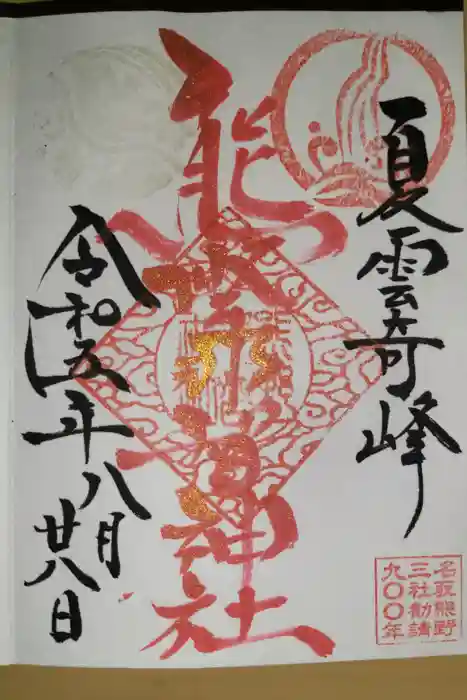 夏雲奇峰
熊野那智神社
令和五年八月
廿八日
名取熊野
三社勧請
九〇〇年